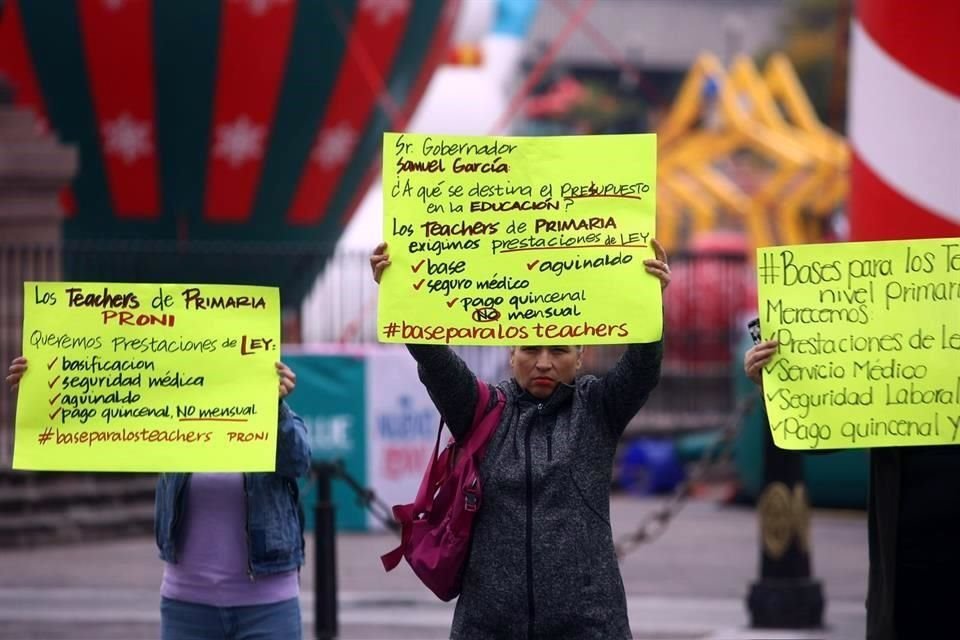 Los Teachers de PRIMARIA
PRONI
Queremos Prestaciones de LEY:
✓basificación
✓seguridad médica
✓aguinaldo
✓pago quincenal, NO mensual
#baseparalosteachers PRONI
Sr. Gobernador
Samuel García:
¿A qué se destina el PRESUPUESTO
en la EDUCACIÓN?
Los TEACHERS de PRIMARIA
exigimos prestaciones de LEY
✓base ✓aguinaldo
✓seguro médico
✓pago quincenal
NO mensual
#baseparalosteachers
#Bases para los Te
nivel Primari
Merecemos:
Prestaciones de le
✓Servicio Médico
✓Seguridad Laboral
✓Pago quincenal y